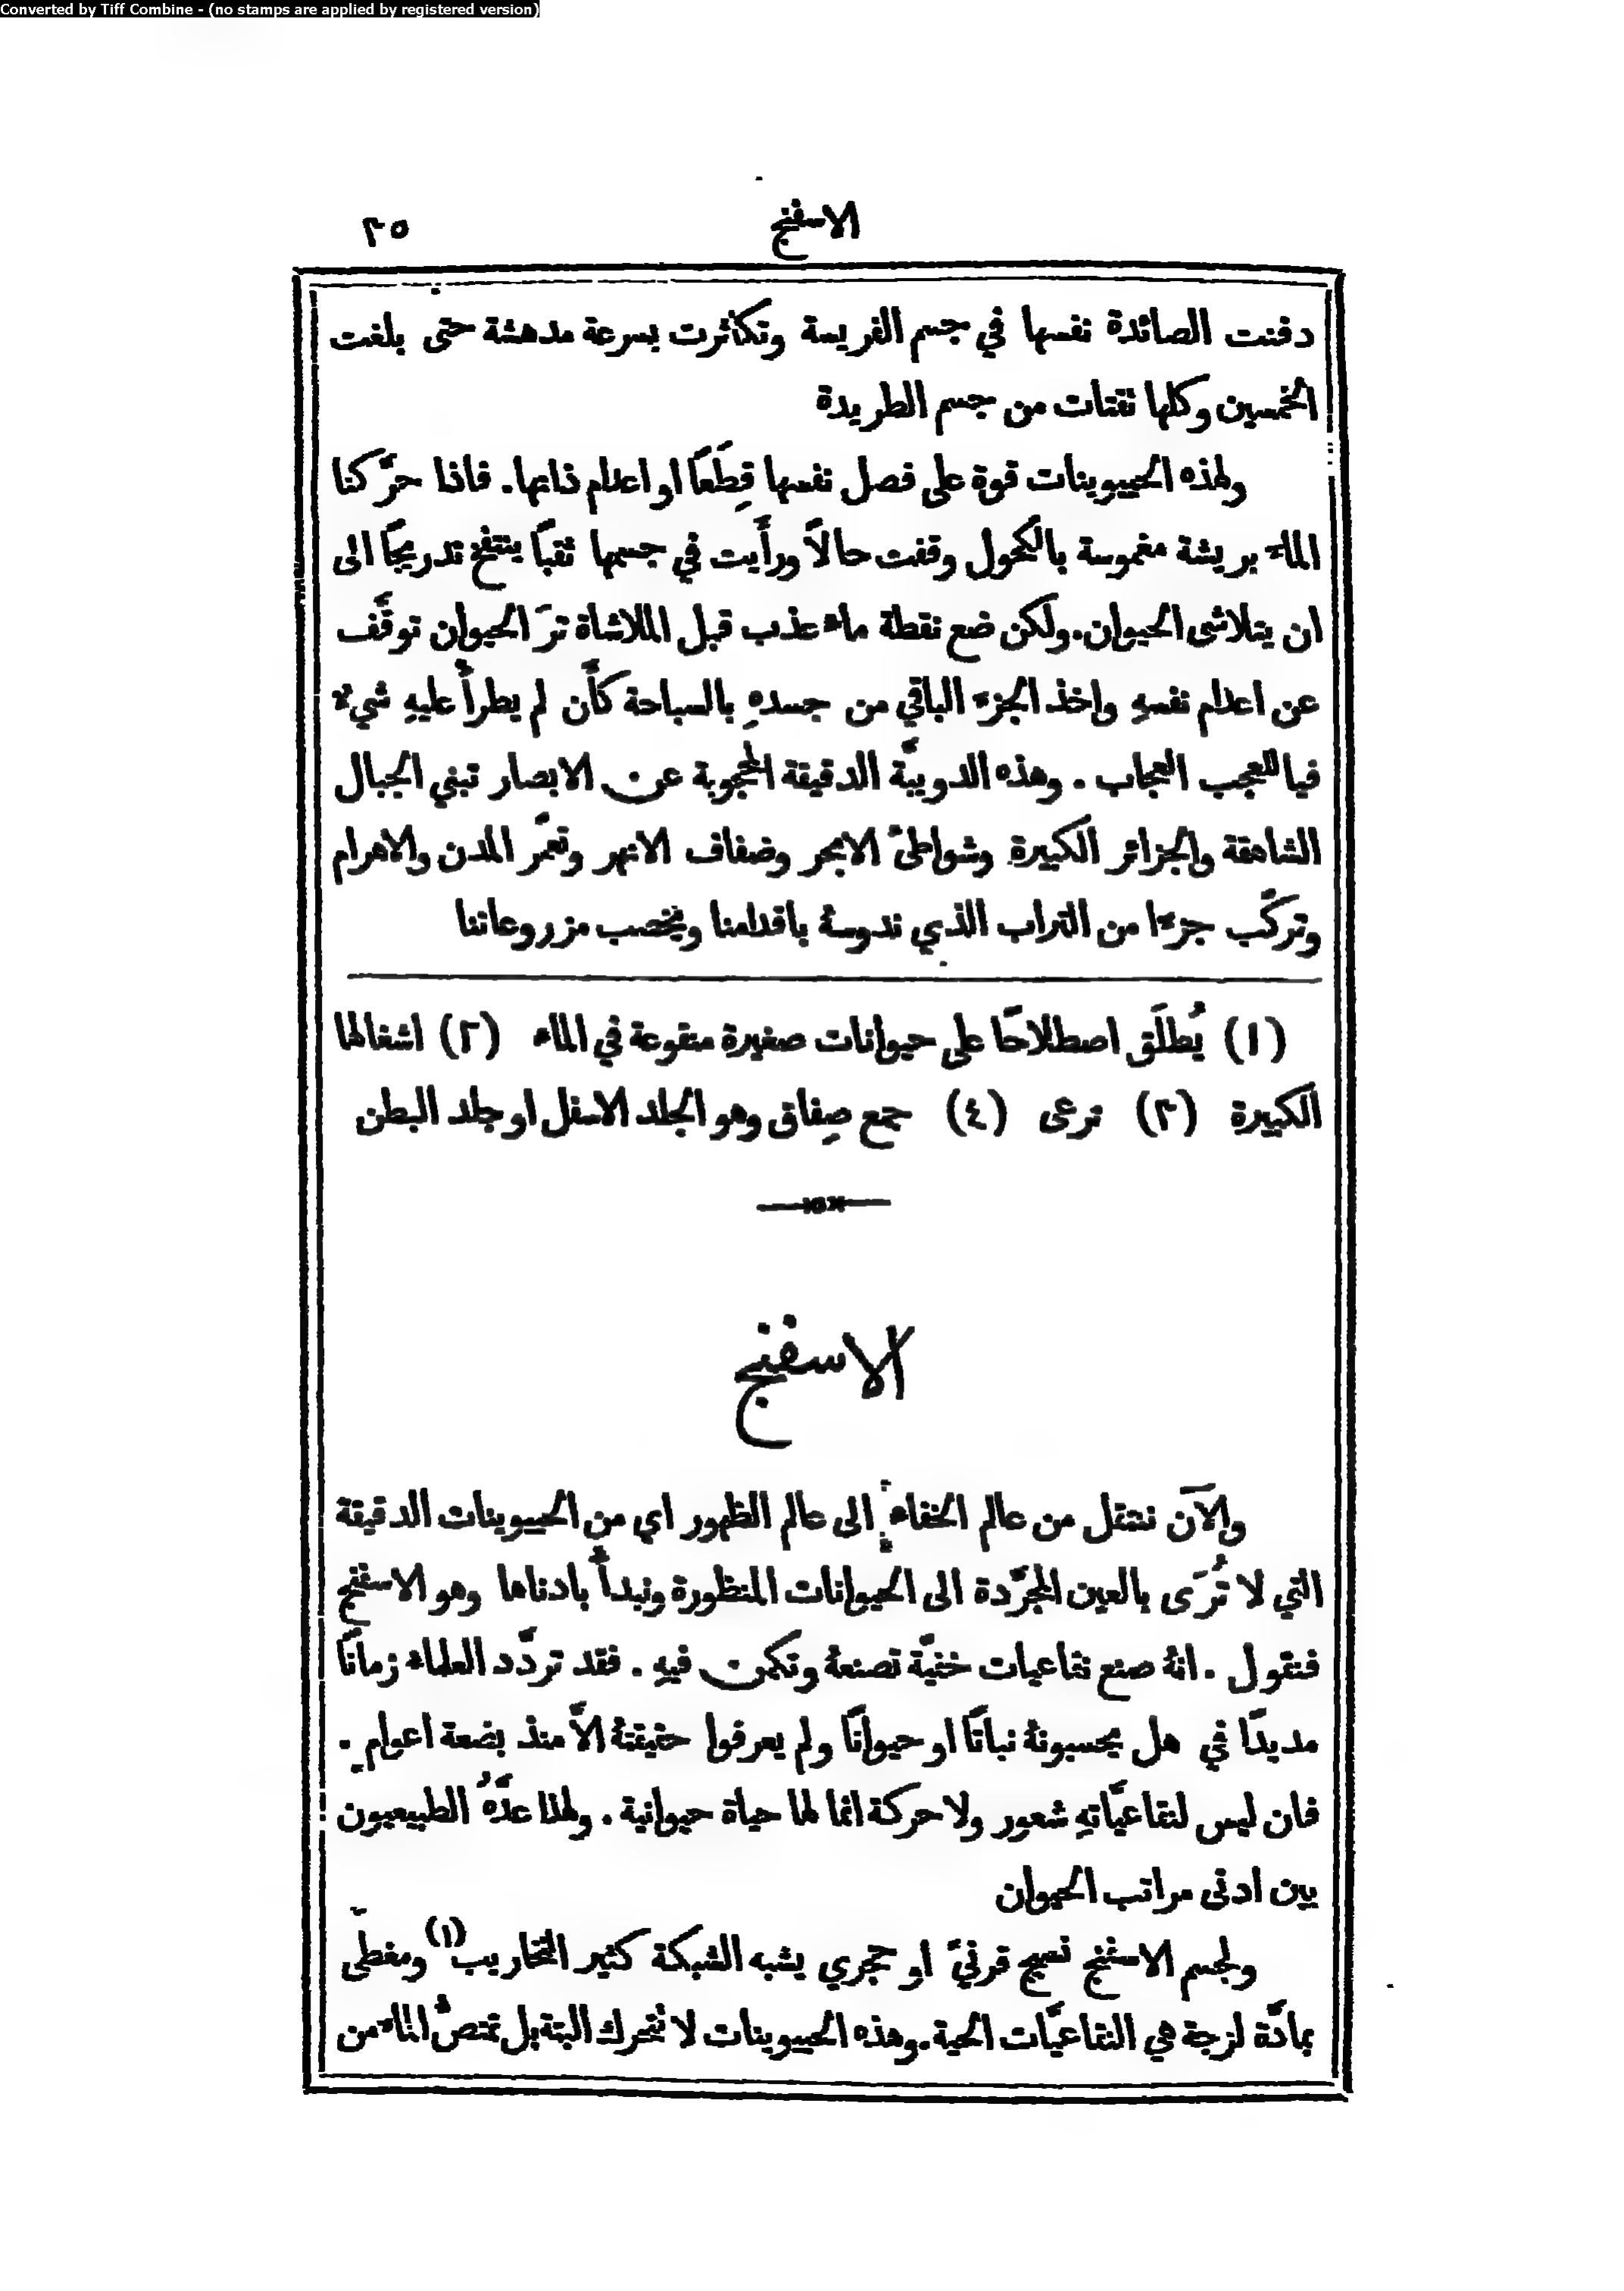 Converted by Tiff Combine - (no stamps are applied by registered version)
الاسفنج
٢٥
دفنت الصائدة نفسها في جسم الفريسة وتكاثرت بسرعة مدهشة حتى بلغت
الخمسين وكلها نقتات من جسم الطريدة
ولهذه الحييوينات قوة على فصل نفسها قِطَعًا او اعدام ذاتها. فاذا حرَّكنا
الماء بريشة مغموسة بالكحول وقفت حالاً ورأَيت في جسمها ثقبًا ينتفخ تدريجًا الى
ان يتلاشى الحيوان. ولكن ضع نقطة ماء عذب قبل الملاشاة ترَ الحيوان توقَّف
عن اعدام نفسهِ واخذ الجزء الباقي من جسدهِ بالسباحة كأَن لم يطرأ عليهِ شيءٌ
فيا للعجب العجاب . وهذه الدويبَّة الدقيقة المحجوبة عن الابصار تبني الجبال
الشاهقة والجزائر الكبيرة وشواطئَ الابحر وضفاف الانهر وتعمّر المدن والاهرام
وتركّب جزءًا من التراب الذي ندوسهُ باقدامنا ويخصب مزروعاتنا
(١) يُطلَق اصطلاحًا على حيوانات صغيرة منقوعة في الماء (٢) اشغالها
الكبيرة (٣) ترعى (٤) جمع صِفاق وهو الجلد الاسفل او جلد البطن
الاسفنج
والآن ننتقل من عالم الخفاء إلى عالم الظهور اي من الحييوينات الدقيقة
التي لا تُرَى بالعين المجرَّدة الى الحيوانات المنظورة ونبدأُ بادناها وهو الاسفنج
فنقول . انهُ صنع نقاعيات خفيَّة تصنعهُ وتكمن فيهِ . فقد تردَّد العلماء زمانًا
مديدًا في هل يحسبونهُ نباتًا او حيوانًا ولم يعرفوا حقيقتهُ الاَّ منذ بضعة اعوامٍ .
فان ليس لنقاعيَّاتهِ شعور ولا حركة انما لها حياة حيوانية . ولهذا عدَّهُ الطبيعيون
بين ادنى مراتب الحيوان
ولجسم الاسفنج نسيج قرنيّ او حجري يشبه الشبكة كثير النخاريب(١) ومغطّى
بمادَّة لزجة هي النقاعيَّات الحية. وهذه الحييوينات لا نتحرك البتة بل تمتصُّ الماء من